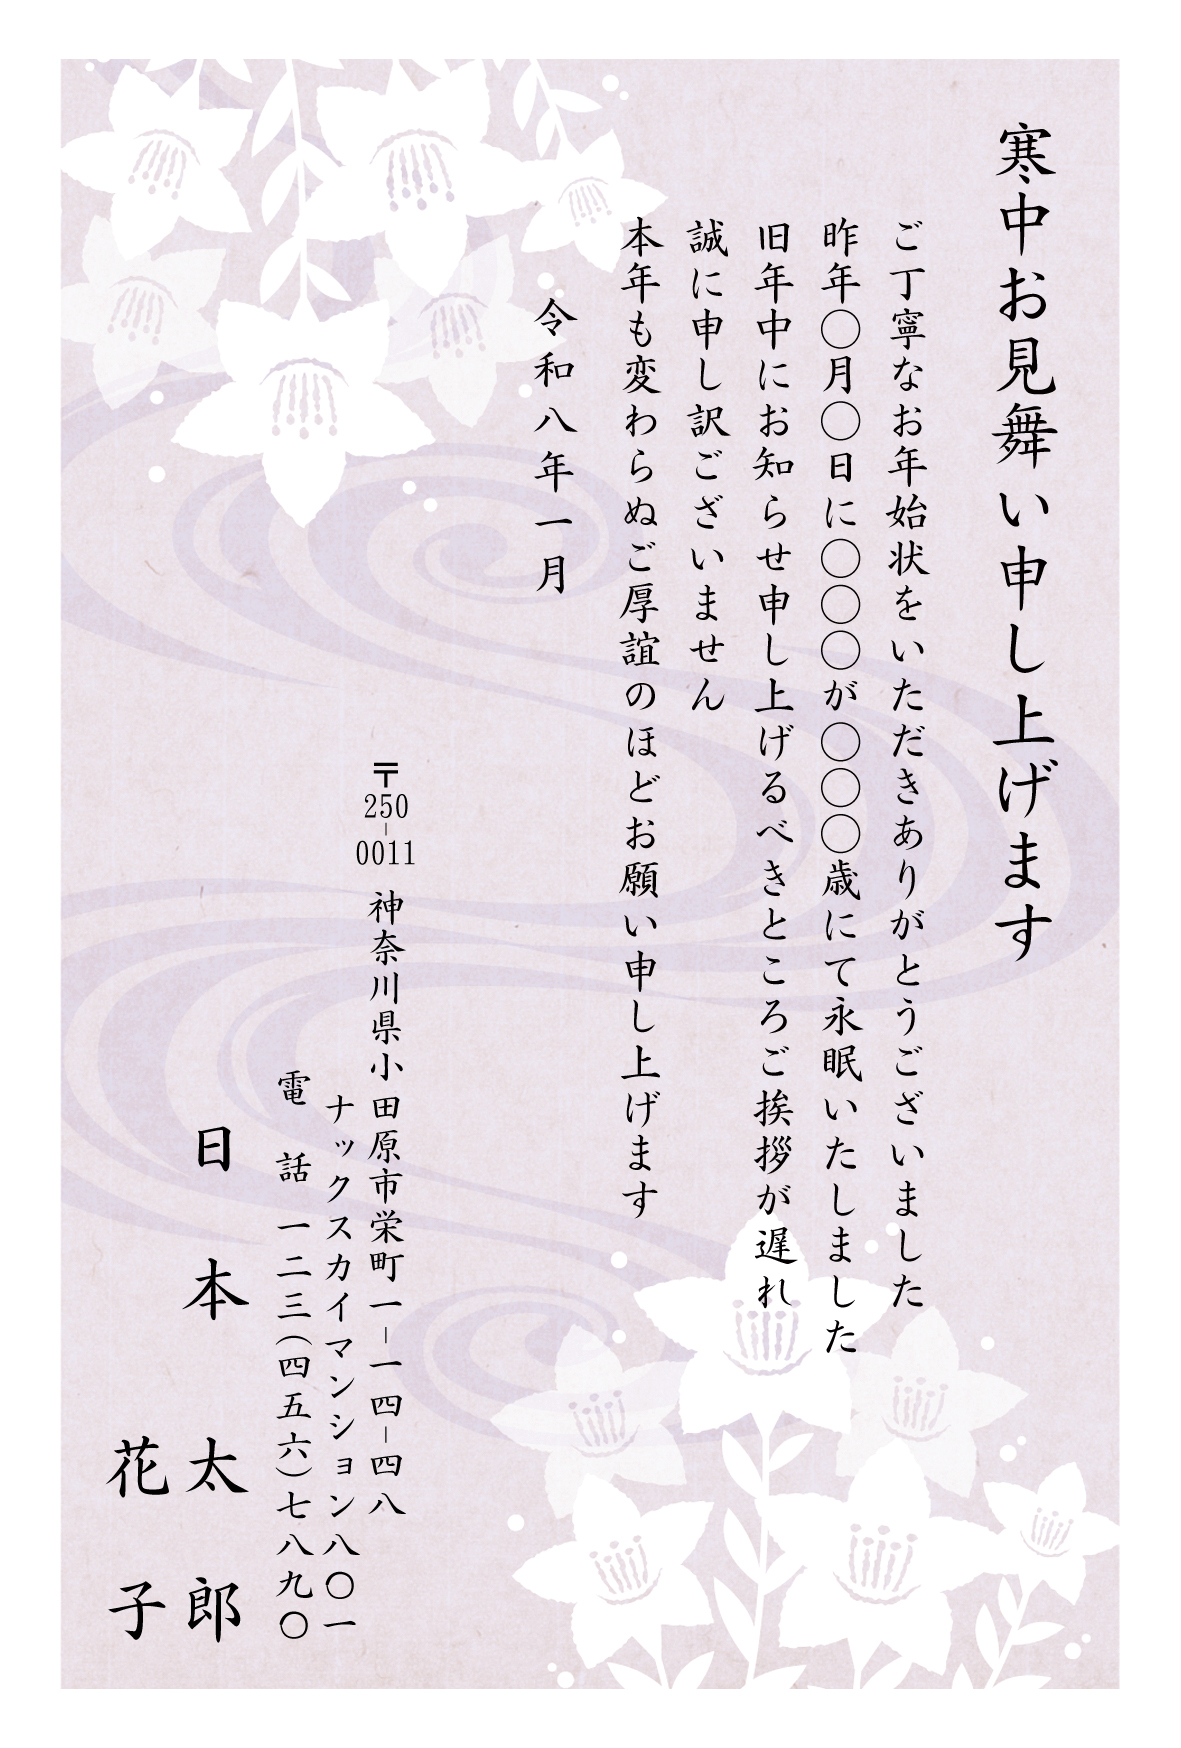 寒中お見舞い申し上げます
ご丁寧なお年始状をいただきありがとうございました
昨年〇月〇日に〇〇〇が〇〇〇歳にて永眠いたしました
旧年中にお知らせ申し上げるべきところご挨拶が遅れ
誠に申し訳ございません
本年も変わらぬご厚誼のほどお願い申し上げます
令和八年一月
〒250-0011 神奈川県小田原市栄町一-一四-四八
ナックスカイマンション八〇一
電話一二三(四五六)七八九〇
日本 太郎
花子